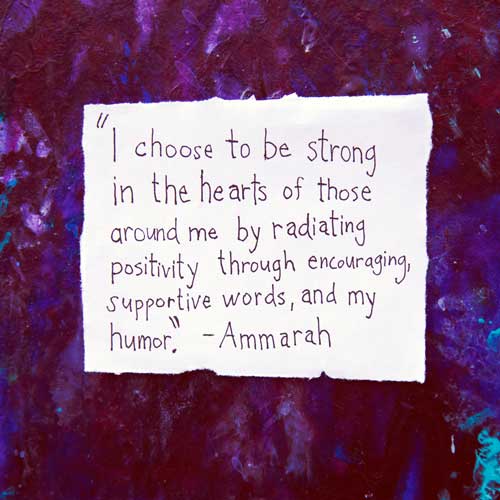 "I choose to be strong
in the hearts of those
around me by radiating
positivity through encouraging,
supportive words, and my
humor." -Ammarah